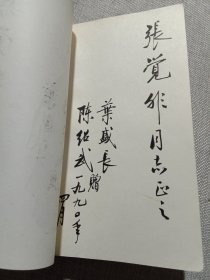 張覚非同志正之
葉盛長
陈绍武贈
一九九〇年
四月